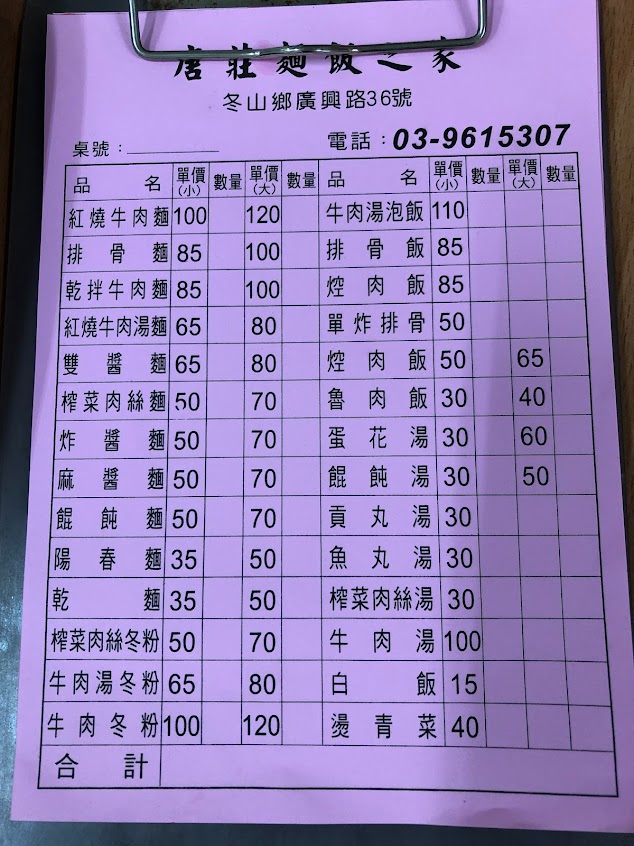 唐莊麵飯之家
冬山鄉廣興路36號
桌號：
電話：03-9615307
品名 單價(小) 數量 單價(大) 數量 品名 單價(小) 數量 單價(大) 數量
紅燒牛肉麵 100 120 牛肉湯泡飯 110
排骨麵 85 100 排骨飯 85
乾拌牛肉麵 85 100 焢肉飯 85
紅燒牛肉湯麵 65 80 單炸排骨 50
雙醬麵 65 80 焢肉飯 50 65
榨菜肉絲麵 50 70 魯肉飯 30 40
炸醬麵 50 70 蛋花湯 30 60
麻醬麵 50 70 餛飩湯 30 50
餛飩麵 50 70 貢丸湯 30
陽春麵 35 50 魚丸湯 30
乾麵 35 50 榨菜肉絲湯 30
榨菜肉絲冬粉 50 70 牛肉湯 100
牛肉湯冬粉 65 80 白飯 15
牛肉冬粉 100 120 燙青菜 40
合計